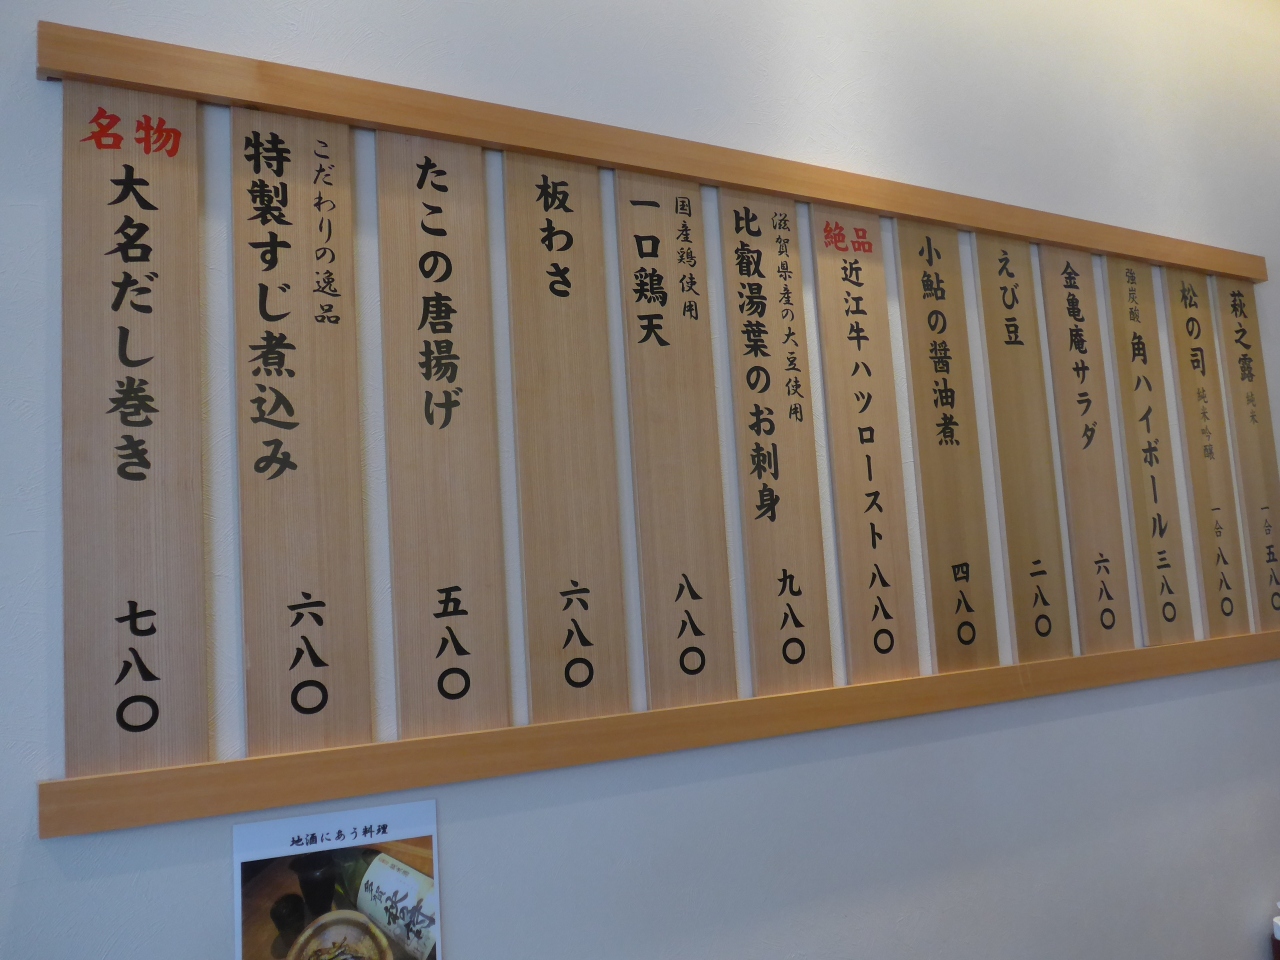 名物
大名だし巻き 七八〇
こだわりの逸品
特製すじ煮込み 六八〇
たこの唐揚げ 五八〇
板わさ 六八〇
国産鶏使用
一口鶏天 八八〇
滋賀県産の大豆使用
比叡湯葉のお刺身 九八〇
絶品
近江牛ハツロースト 八八〇
小鮎の醤油煮 四八〇
えび豆 二八〇
金亀庵サラダ 六八〇
強炭酸 角ハイボール 三八〇
松の司 純米吟醸 一合 八八〇
萩之露 純米 一合 五八〇
地酒にあう料理